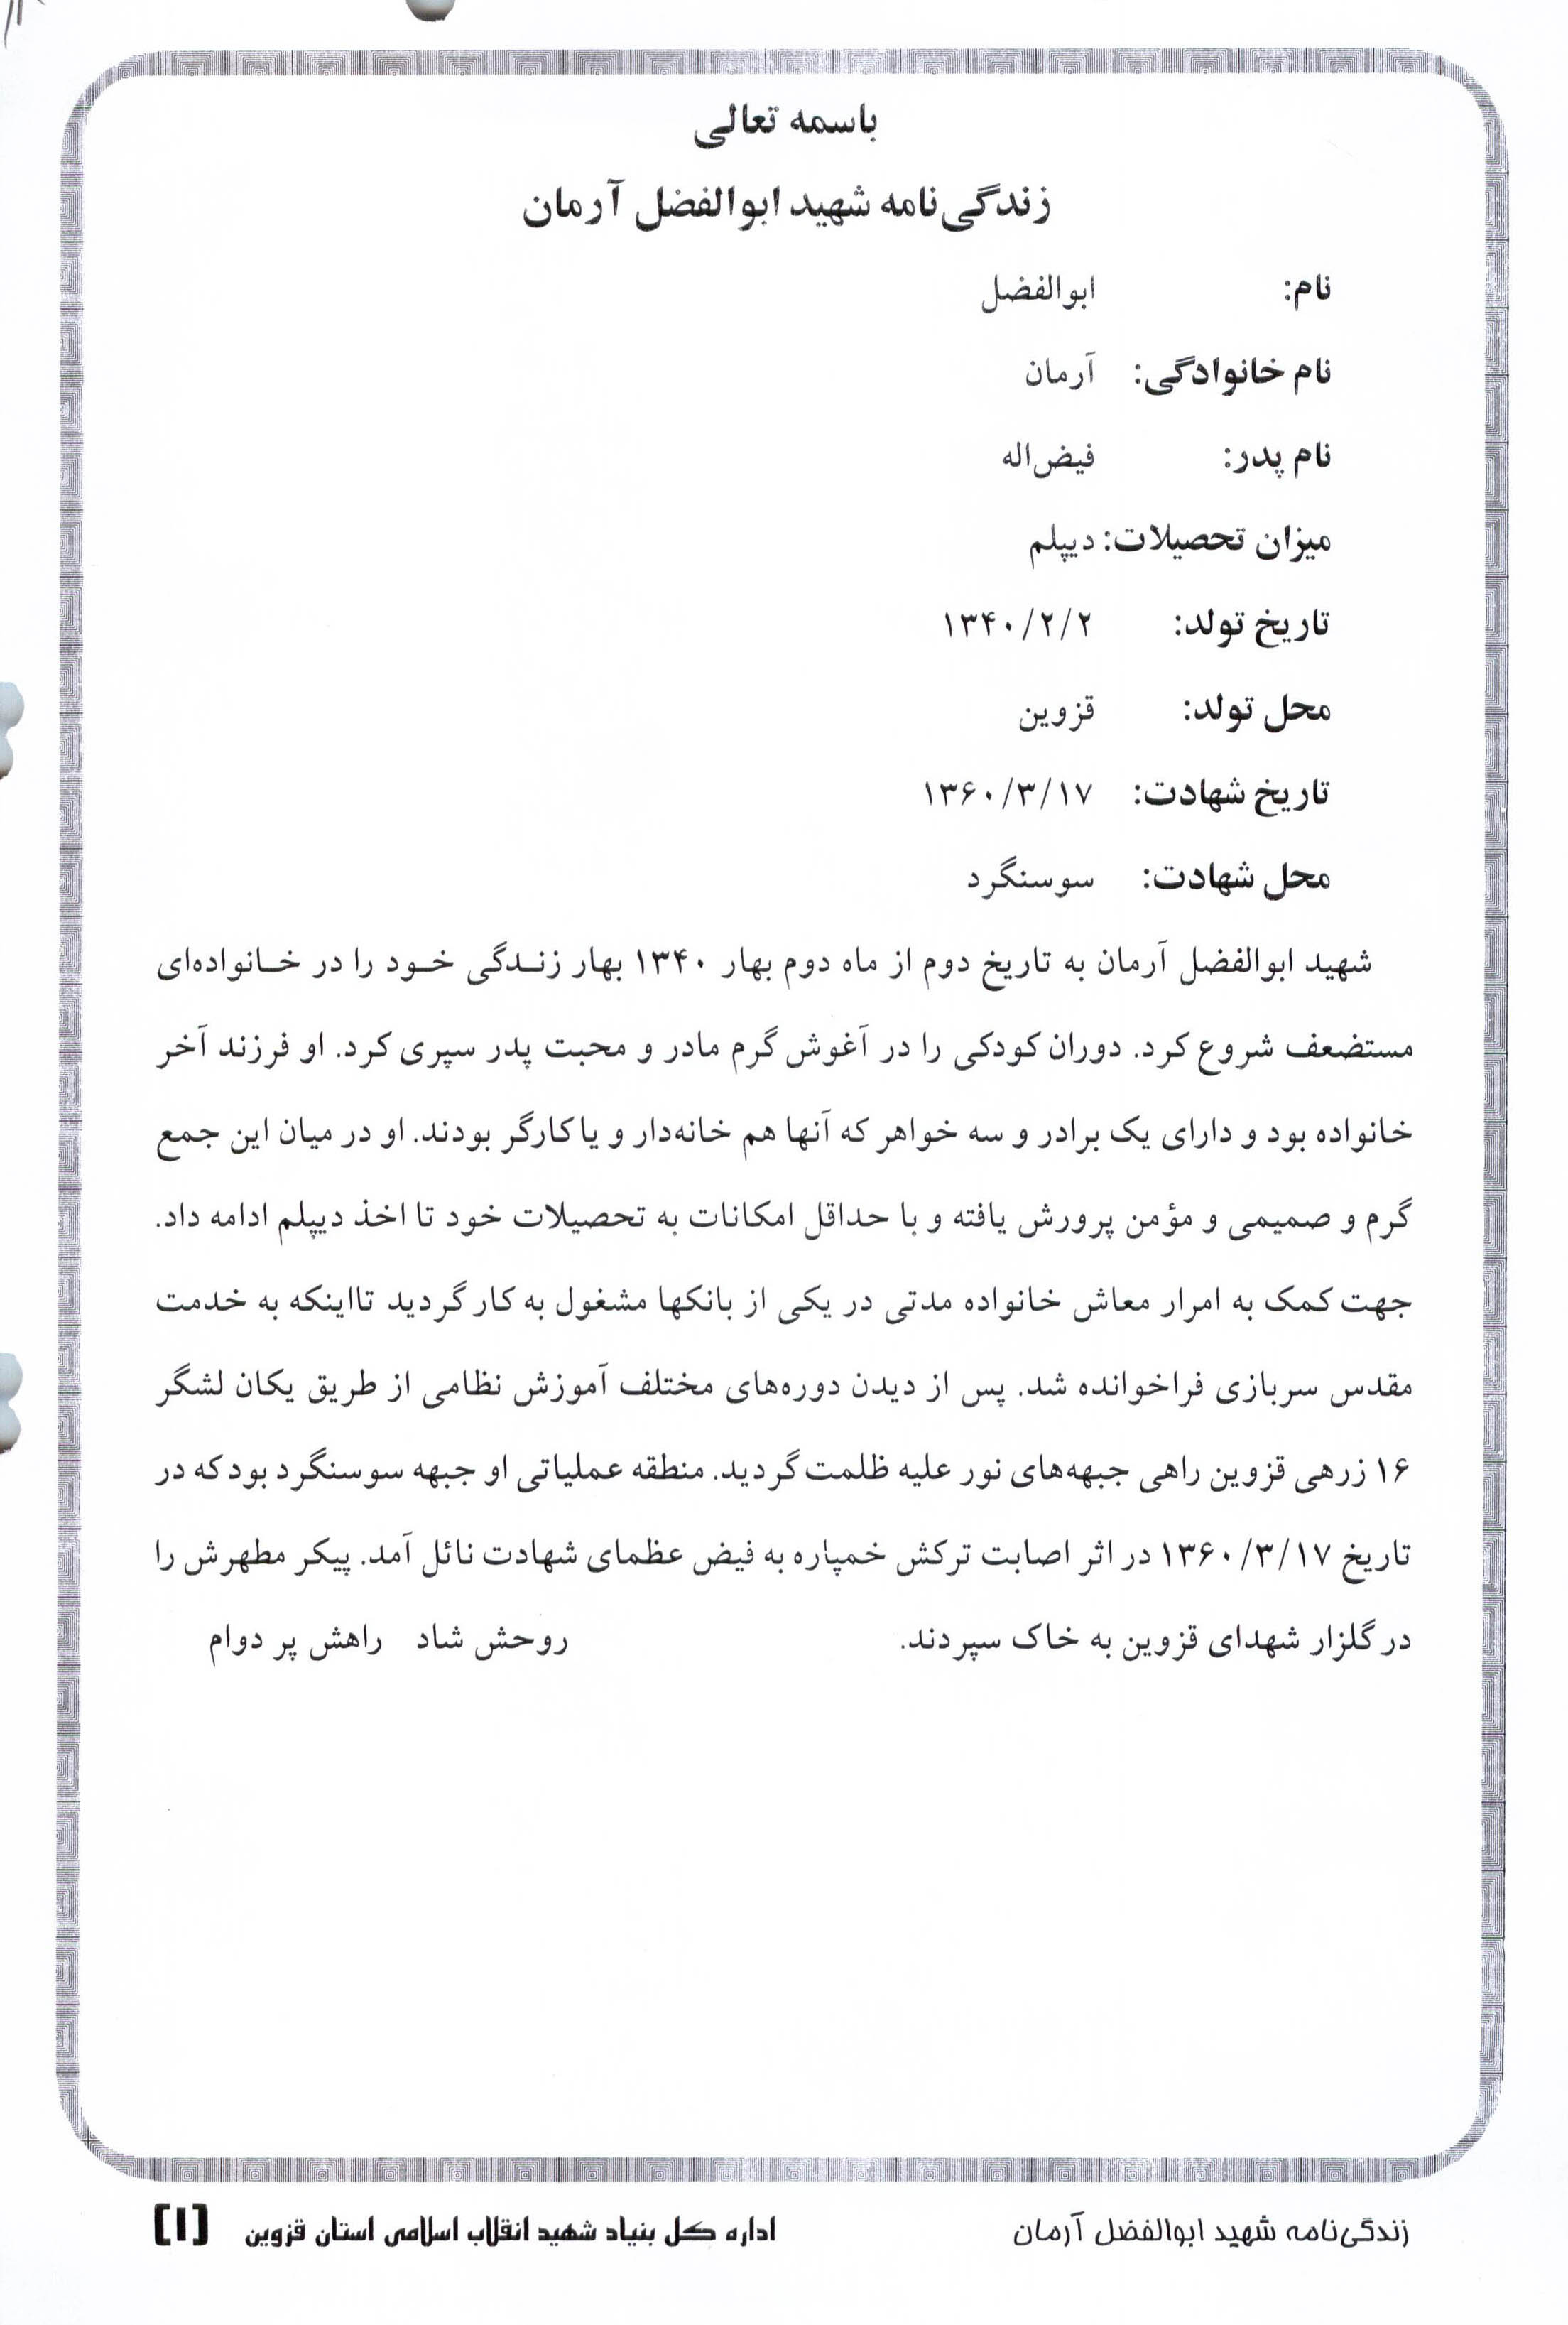 باسمه تعالی
زندگی‌نامه شهید ابوالفضل آرمان
نام: ابوالفضل
نام خانوادگی: آرمان
نام پدر: فیض‌اله
میزان تحصیلات: دیپلم
تاریخ تولد: ۱۳۴۰/۲/۲
محل تولد: قزوین
تاریخ شهادت: ۱۳۶۰/۳/۱۷
محل شهادت: سوسنگرد
شهید ابوالفضل آرمان به تاریخ دوم از ماه دوم بهار ۱۳۴۰ بهار زندگی خود را در خانواده‌ای
مستضعف شروع کرد. دوران کودکی را در آغوش گرم مادر و محبت پدر سپری کرد. او فرزند آخر
خانواده بود و دارای یک برادر و سه خواهر که آنها هم خانه‌دار و یا کارگر بودند. او در میان این جمع
گرم و صمیمی و مؤمن پرورش یافته و با حداقل امکانات به تحصیلات خود تا اخذ دیپلم ادامه داد.
جهت کمک به امرار معاش خانواده مدتی در یکی از بانکها مشغول به کار گردید تااینکه به خدمت
مقدس سربازی فراخوانده شد. پس از دیدن دوره‌های مختلف آموزش نظامی از طریق یکان لشگر
۱۶ زرهی قزوین راهی جبهه‌های نور علیه ظلمت گردید. منطقه عملیاتی او جبهه سوسنگرد بود که در
تاریخ ۱۳۶۰/۳/۱۷ در اثر اصابت ترکش خمپاره به فیض عظمای شهادت نائل آمد. پیکر مطهرش را
در گلزار شهدای قزوین به خاک سپردند. روحش شاد راهش پر دوام
زندگی‌نامه شهید ابوالفضل آرمان اداره کل بنیاد شهید انقلاب اسلامی استان قزوین [۱]